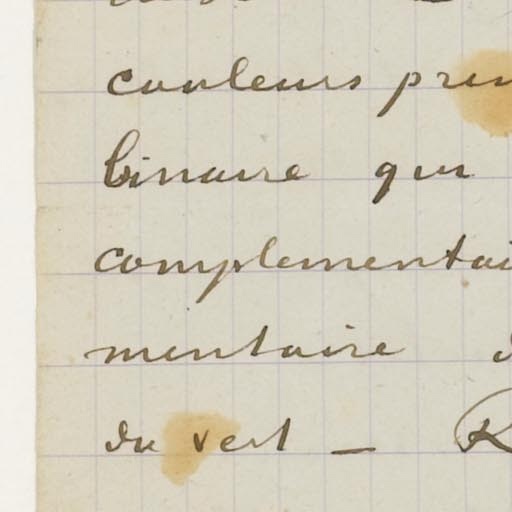 couleurs prim
binaire qui
complementai
mentaire d
du vert — R